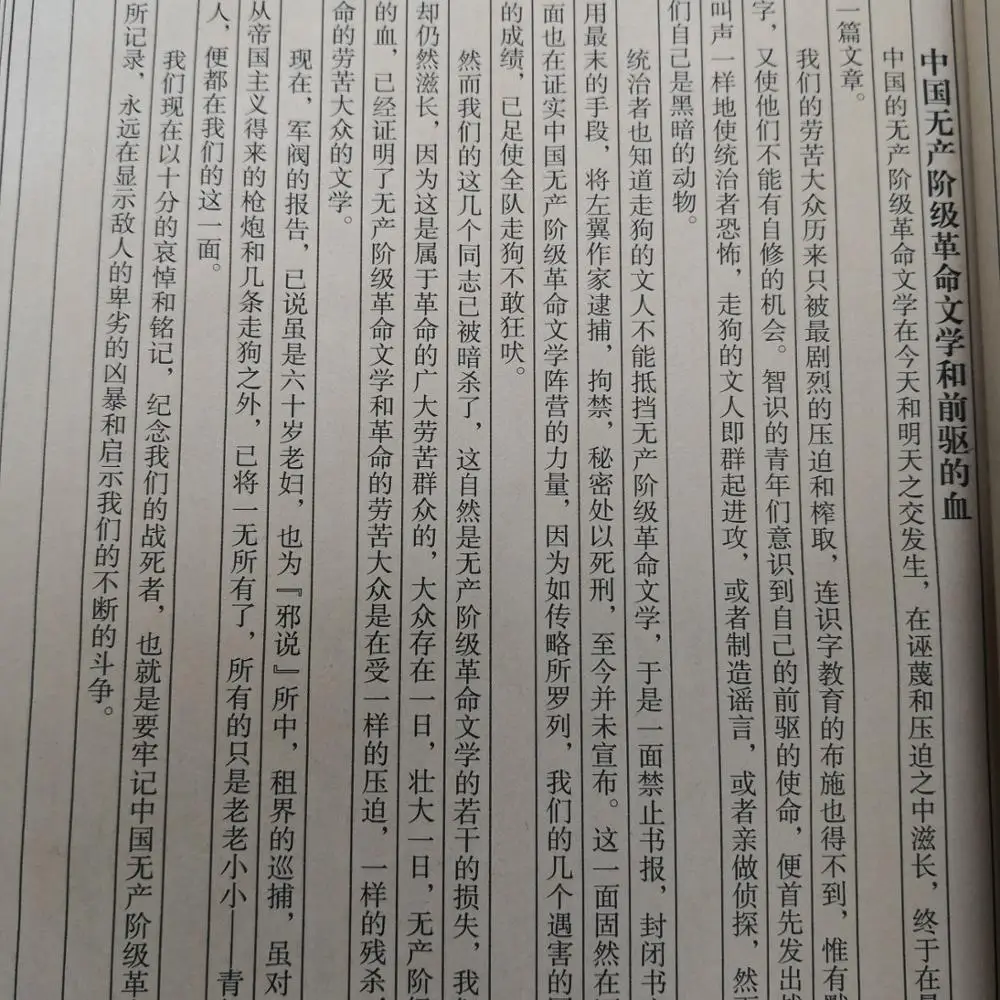 中国无产阶级革命文学和前驱的血
中国的无产阶级革命文学在今天和明天之交发生，在诬蔑和压迫之中滋长，终于在
一篇文章。
我们的劳苦大众历来只被最剧烈的压迫和榨取，连识字教育的布施也得不到，惟有
字，又使他们不能有自修的机会。智识的青年们意识到自己的前驱的使命，便首先发出
叫声一样地使统治者恐怖，走狗的文人即群起进攻，或者制造谣言，或者亲做侦探，然
们自己是黑暗的动物。
统治者也知道走狗的文人不能抵挡无产阶级革命文学，于是一面禁止书报，封闭书
用最末的手段，将左翼作家逮捕，拘禁，秘密处以死刑，至今并未宣布。这一面固然在
面也在证实中国无产阶级革命文学阵营的力量，因为如传略所罗列，我们的几个遇害的
的成绩，已足使全队走狗不敢狂吠。
然而我们的这几个同志已被暗杀了，这自然是无产阶级革命文学的若干的损失，我
却仍然滋长，因为这是属于革命的广大劳苦群众的，大众存在一日，壮大一日，无产阶级
的血，已经证明了无产阶级革命文学和革命的劳苦大众是在受一样的压迫，一样的残杀，
命的劳苦大众的文学。
现在，军阀的报告，已说虽是六十岁老妇，也为『邪说』所中，租界的巡捕，虽对
从帝国主义得来的枪炮和几条走狗之外，已将一无所有了，所有的只是老老小小——青
人，便都在我们的这一面。
我们现在以十分的哀悼和铭记，纪念我们的战死者，也就是要牢记中国无产阶级革
所记录，永远在显示敌人的卑劣的凶暴和启示我们的不断的斗争。